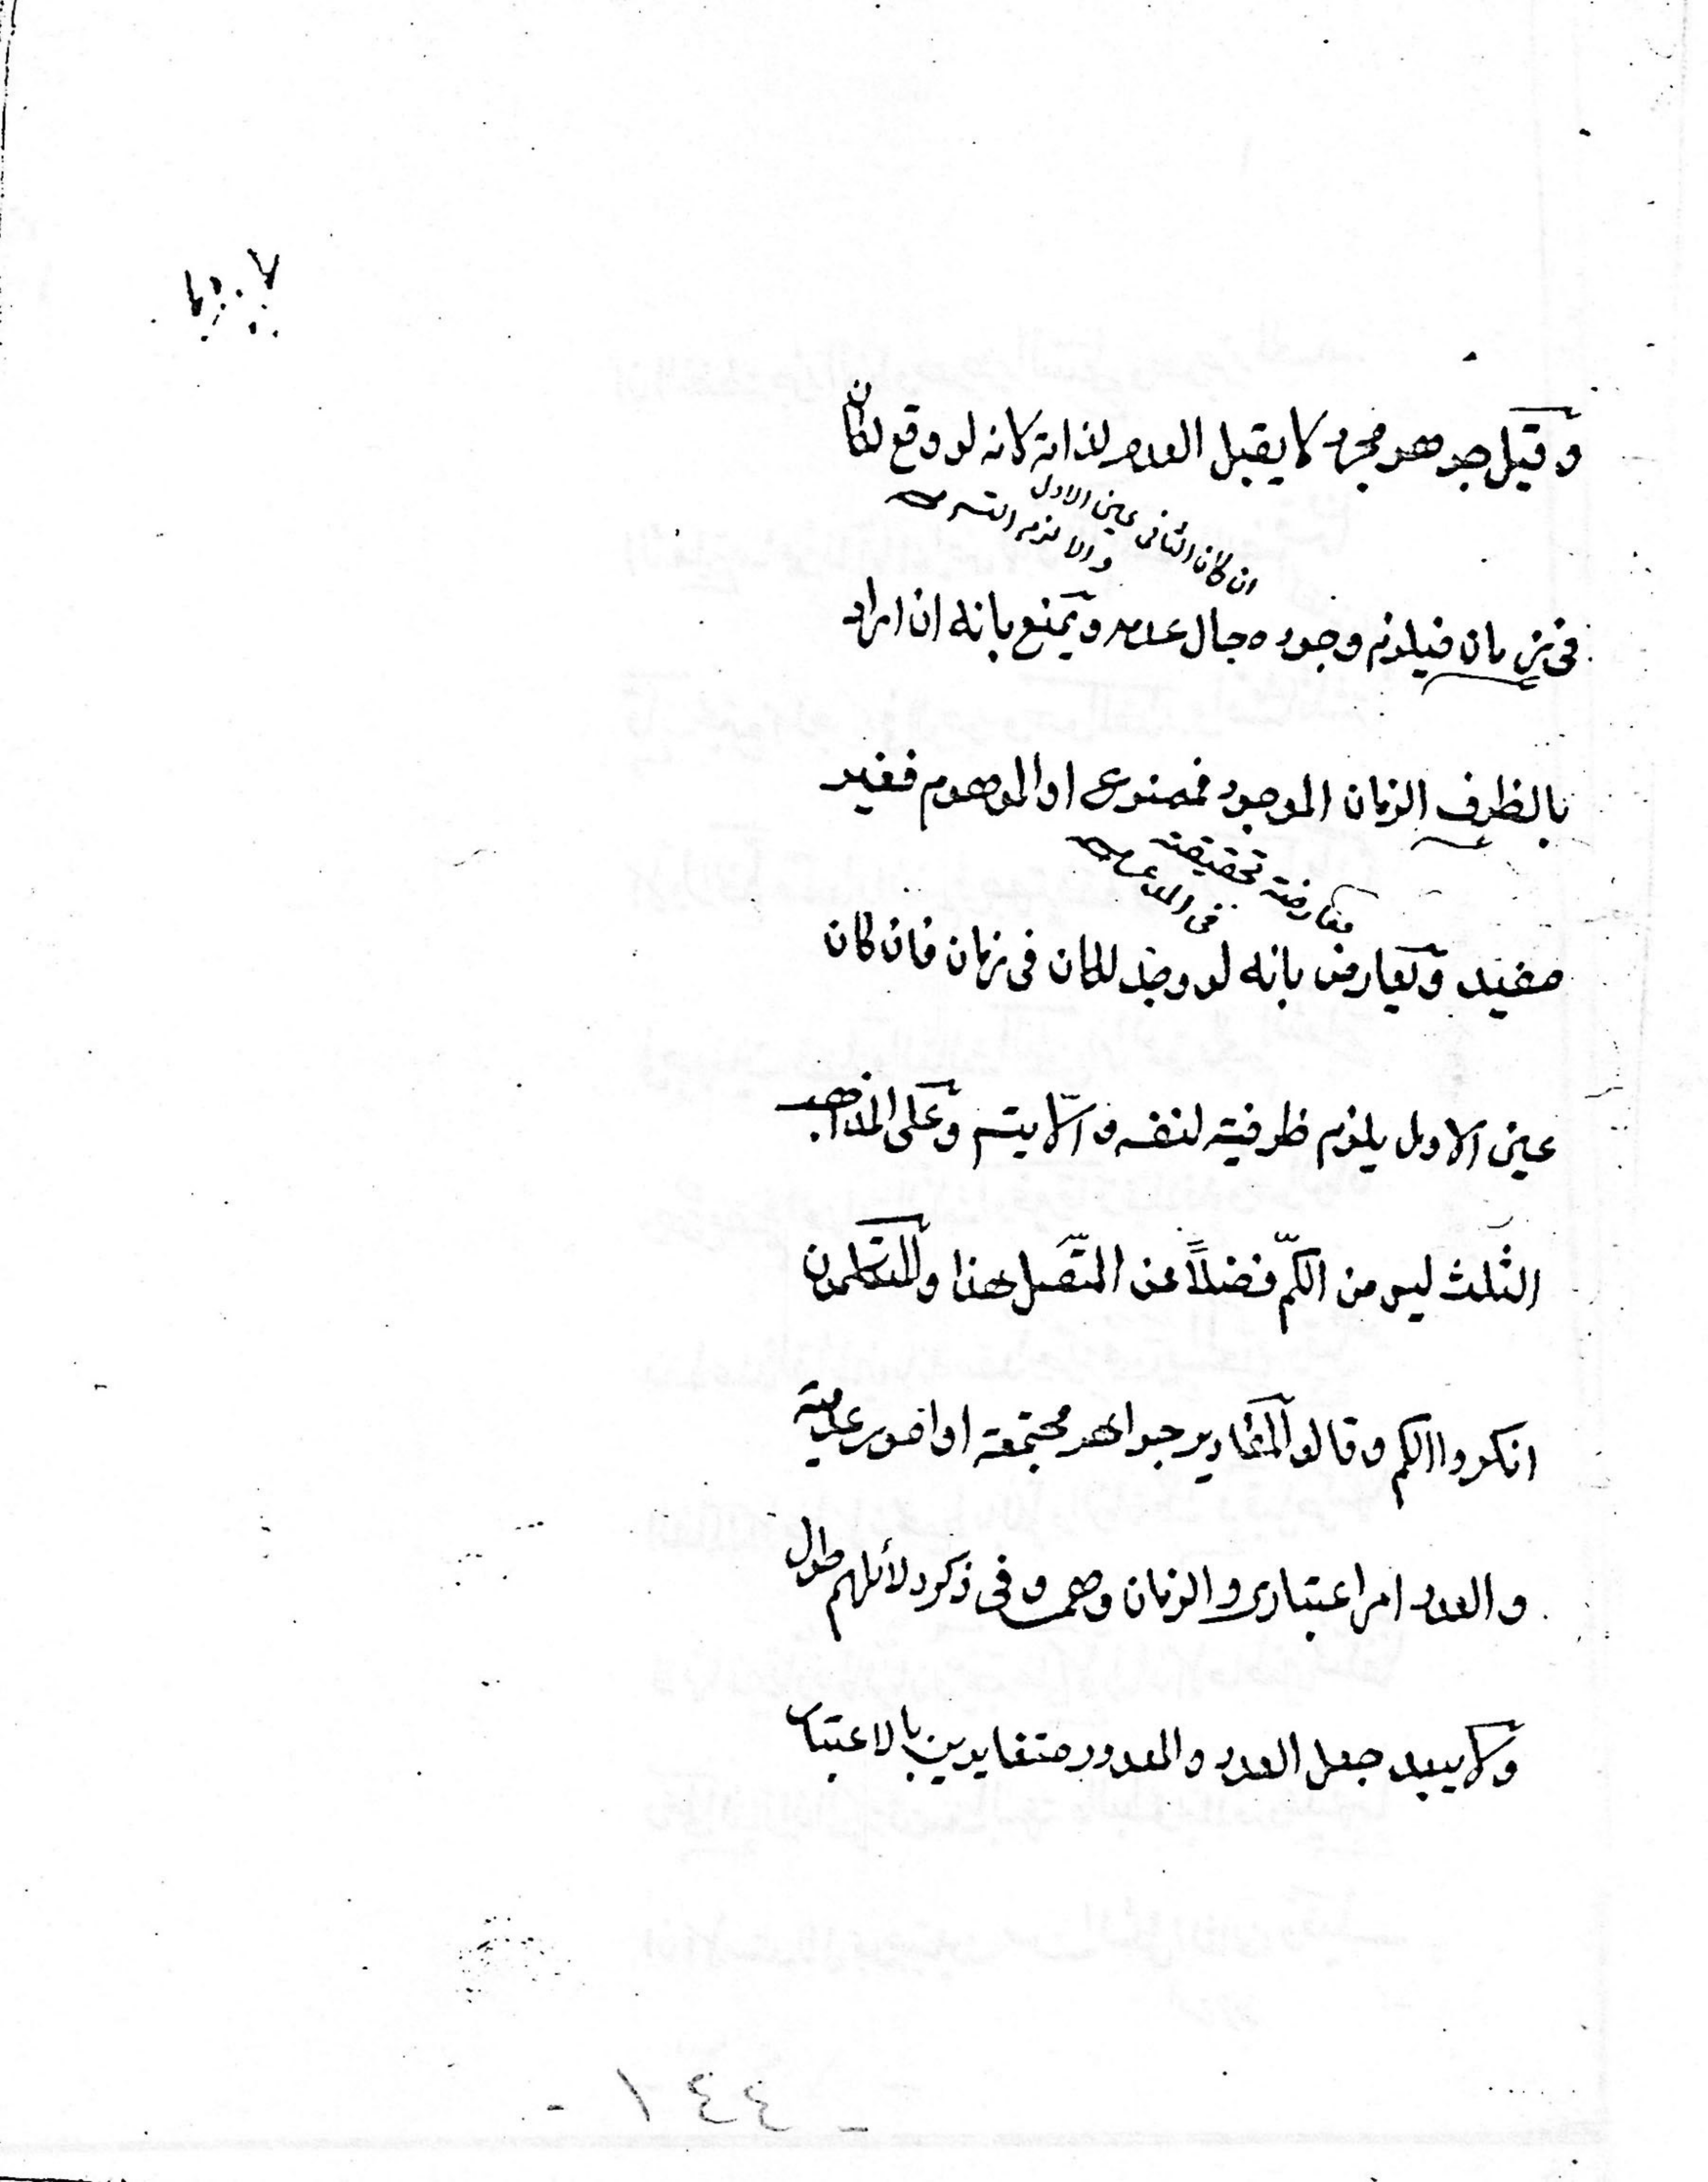 وقيل جوهر مجرد لا يقبل العدم لذاته لانه لو وقع لكان
ان كان الثاني عين الاول
والا لزم التسـ
في زمان فيلزم وجوده حال عدمه ويمنع بانه ان اراد
بالظرف الزمان الموجود فممنوع او الموهوم فغير
معارضة تحقيقية
في المدعى
مفيد ويعارض بانه لو وجد لكان في زمان فان كان
عين الاول يلزم ظرفية لنفسه والّا يتسـ وعلى المذاهب
الثلث ليس من الكمّ فضلاً عن المتّصل هذا والمتكلمون
انكروا الكم وقالوا المقادير جواهر مجتمعة او امور عدمية
والعدد امر اعتباري والزمان وهمي وفي ذكر دلائلهم طول
ولا يبعد جعل العدد والمعدود متغايرين بالاعتبار